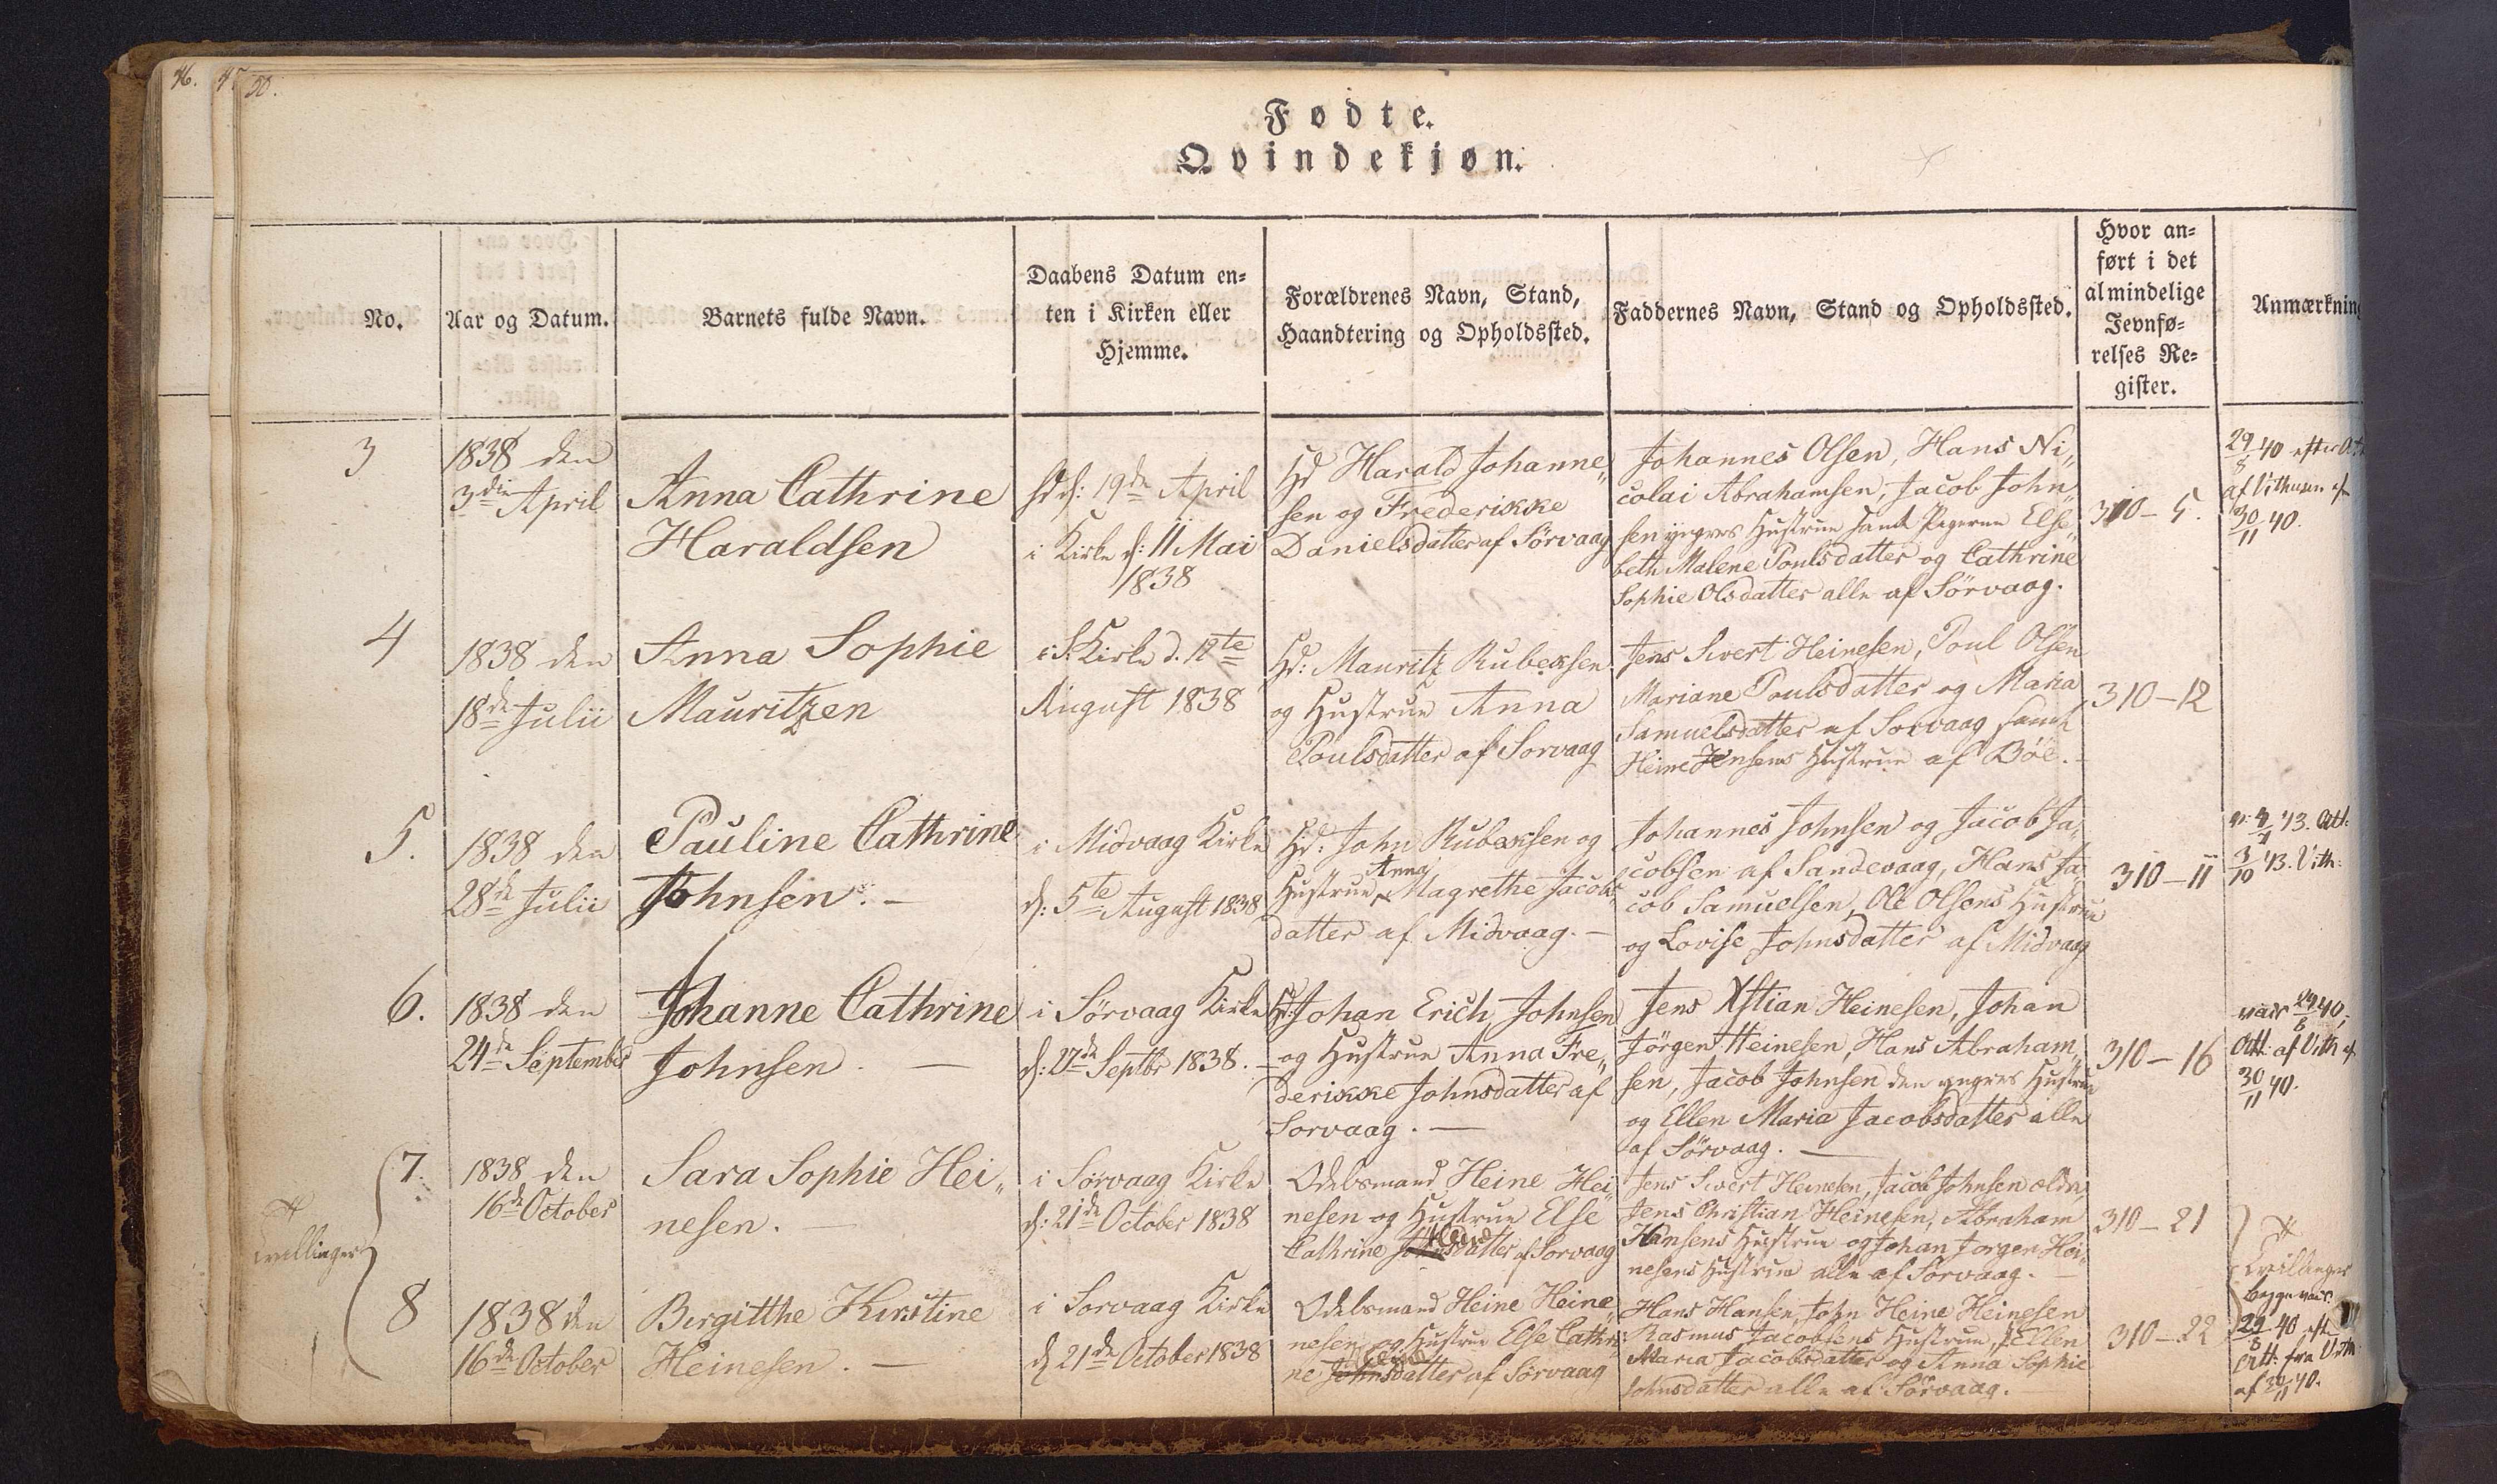 46.
47
50.
Fødte.
Qvindekjøn.
No.
Aar og Datum.
Barnets fulde Navn.
Daabens Datum en=
ten i Kirken eller
Hjemme.
Forældrenes Navn, Stand,
Haandtering og Opholdssted.
Faddernes Navn, Stand og Opholdssted.
Hvor an=
ført i det
almindelige
Jevnfø=
relses Re=
gister.
Anmærkning
3
1838 den
3die April
Anna Cathrine
Haraldsen
19de April
i Kirke d: 11 Mai
1838
Harald Johanne„
sen og Frederikke
Danielsdatter af Sörvaag
Johannes Olsen, Hans Ni„
colai Abrahamsen, Jacob John„
sen yngres Hustrue samt Pigerne Else„
beth Malene Poulsdatter og Cathrine
Sophie Olsdatter alle af Sörvaag.
310-5.
29/8 40 efter
af Vithusen
30/11 40.
4
1838 den
18de Julii
Anna Sophie
Mauritzen
i S. Kirke d. 12te
August 1838
Hd: Mauritz Rubeksen
og Hustrue Anna
Poulsdatter af Sorvaag
Jens Sivert Heinesen, Poul Olsen
Mariane Poulsdatter og Maria
Samuelsdatter af Sorvaag samt
Heine Jensens Hustrue af Böe.
310-12
5.
1838 den
28de Julii
Pauline Cathrine
Johnsen. -
i Midvaag Kirke
d: 5te August 1838
Hd: John Rubeksen og
Anna
Hustrue Magrethe Jacobs
datter af Midvaag. -
Johannes Johnsen og Jacob Ja„
cobsen af Sandevaag, Hans Ja
cob Samuelsen, Ole Olsens Hustrue
og Lovise Johnsdatter af Midvaag
310-11
43. Att:
3/10 43. Vith:
6.
1838 den
24de September
Johanne Cathrine
Johnsen. -
i Sörvaag Kirke
d: 27de Septbr 1838. -
Hd: Johan Erich Johnsen
og Hustrue Anna Fre„
derikke Johnsdatter af
Sorvaag. -
Jens Xstian Heinesen, Johan
Jörgen Heinesen, Hans Abraham„
sen, Jacob Johnsen den yngres Hustrue
og Ellen Maria Jacobsdatter alle
af Sörvaag. -
310-16
vacc 29/8 40,
Att: af Vith
30/11 40.
7.
1838 den
16de October
Sara Sophie Hei„
nesen. -
i Sörvaag Kirke
d: 21de October 1838
Odelsmand Heine Hei„
nesen og Hustrue Else
Cathrine Johnsdatter af Sorvaag
Jens Sivert Heinesen, Jacob Johnsen ældr,
Jens Christian Heinesen, Abraham
Hansens Hustrue og Johan Jorgen Hei„
nesens Hustrue alle af Sorvaag. -
310-21
tvillinger
8
1838 den
16de October
Birgitthe Kirstine
Heinesen. -
i Sorvaag Kirke
d 21de October 1838
Odelsmand Heine Heine„
nesen og Hustrue Else Cathri„
ne Johnsdatter af Sörvaag
Hans Hansen, John Heine Heinesen
Rasmus Jacobsens Hustrue, Ellen
Maria Jacobsdatter og Anna Sophie
Johnsdatter alle af Sörvaag. -
310-22
tvillinger
begge vacc.
29/8 40
Att: fra Vith:
af 30/11 40.